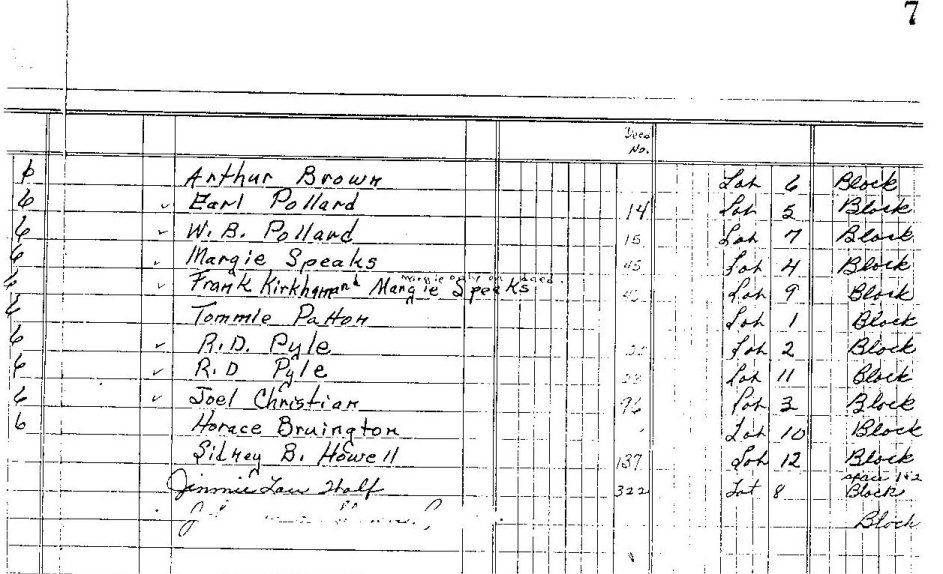 7
Deed No.
6 Arthur Brown Lot 6 Block
6 ✓ Earl Pollard 14 Lot 5 Block
6 ✓ W. B. Pollard 15 Lot 7 Block
6 ✓ Margie Speaks 45 Lot 4 Block
margie only on deed.
6 ✓ Frank Kirkham and Margie Speaks 45 Lot 9 Block
6 Tommie Patton Lot 1 Block
6 ✓ R. D. Pyle Lot 2 Block
6 ✓ R. D Pyle Lot 11 Block
6 ✓ Joel Christian 96 Lot 3 Block
6 Horace Bruington Lot 10 Block
Sidney B. Howell 137 Lot 12 Block
space 1+2
Jimmie Lou 322 Lot 8 Block
Block